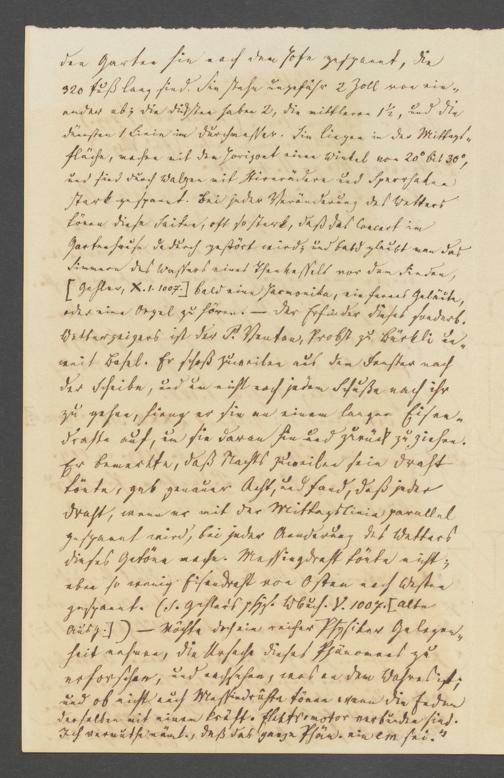 den Garten hin nach dem Hofe gespannt, die
320 Fuß lang sind. Sie stehn ungefähr 2 Zoll von ein-
ander ab; die dicksten haben 2, die mittleren 1½, und die
dünnsten 1 Linie im Durchmesser. Sie liegen in der Mittags-
fläche, machen mit dem Horizont einen Winkel von 20° bis 30°,
und sind durch Walzen mit Stirnrädern und Sperrhaken
stark gespannt. Bei jeder Veränderung des Wetters
tönen diese Saiten, oft so stark, daß das Concert im
Gartenhause dadurch gestört wird; und bald glaubt man das
Simmern des Wassers eines Theekessels vor dem Sieden,
[Gehler, X. 1. 1007.] bald eine Harmonika, ein fernes Geläute,
oder eine Orgel zu hören. — Der Erfinder dieses sonderb.
Wetterzeigers ist der P. Ventan, Probst zu Bürkli un-
weit Basel. Er schoß zuweilen aus dem Fenster nach
der Scheibe, und um nicht nach jedem Schuße nach ihr
zu gehen, hieng er sie an einem langen Eisen-
drathe auf, um sie daran hin und zurück zu ziehen.
Er bemerkte, daß Nachts zuweilen sein Draht
tönte, gab genauer Acht, und fand, daß jeder
Draht, wenn er mit der Mittagslinie parallel
gespannt wird, bei jeder Aenderung des Wetters
dieses Getöne mache. Messingdraht tönte nicht;
eben so wenig Eisendraht von Osten nach Westen
gespannt (s. Gehlers phys. Wbuch. V. 1007. [alte
Ausg.]) — Möchte doch ein reicher Physiker Gelegen-
heit nehmen, die Ursache dieses Phänomens zu
erforschen, und nachsehen, was an dem Wahres ist;
und ob nicht auch Messindräthe tönen wenn die Enden
derselben mit einem kräft. Elektromotor verbunden sind.
Ich vermuthe näml., daß das ganze Phän. ein em sei."